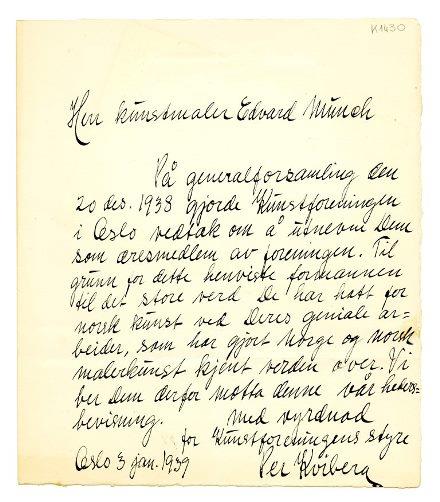 K1430
Herr kunstmaler Edvard Munch
På generalforsamling den
20 des. 1938 gjorde Kunstforeningen
i Oslo vedtak om å utnevne Dem
som æresmedlem av foreningen. Til
grunn for dette henviste formannen
til det store verd De har hatt for
norsk kunst ved Deres geniale ar=
beider, som har gjort Norge og norsk
malerkunst kjent verden over. Vi
ber Dem derfor motta denne vår heders=
bevisning. Med vyrdnad
for Kunstforeningens styre
Oslo 3 jan. 1939 Per Kviberg